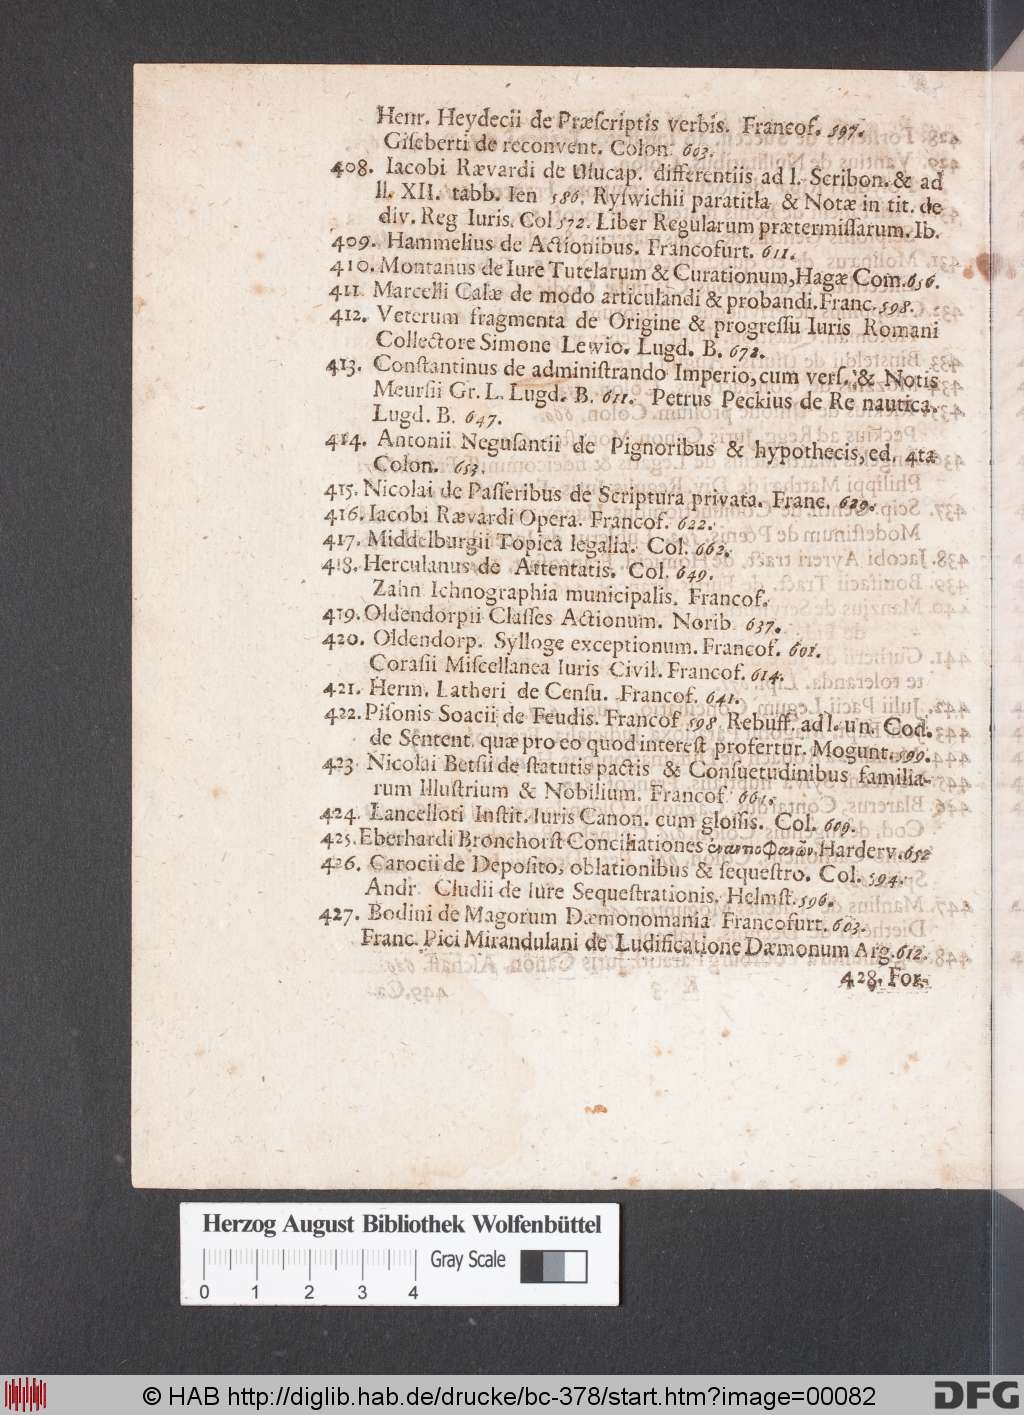 Henr. Heydecii de Præſcriptis verbis. Francof. 597.
Giſeberti de reconvent. Colon 603.
408. Iacobi Rævardi de Uſucap. differentiis ad l. Scribon. & ad
ll. XII. tabb. Ien 586. Ryſwichii paratitla & Notæ in tit. de
div. Reg Iuris. Col 572. Liber Regularum prætermiſſarum. Ib.
409. Hammelius de Actionibus. Francofurt. 611.
410. Montanus de Iure Tutelarum & Curationum, Hagæ Com. 656.
411 Marcelli Calæ de modo articulandi & probandi. Franc. 598.
412. Veterum fragmenta de Origine & progreſſu Iuris Romani
Collectore Simone Lewio. Lugd. B. 672.
413. Conſtantinus de adminiſtrando Imperio, cum verſ. & Notis
Meurſii Gr. L. Lugd. B. 611. Petrus Peckius de Re nautica.
Lugd. B. 647.
414. Antonii Neguſantii de Pignoribus & hypothecis, ed. 4ta
Colon. 653.
415. Nicolai de Paſſeribus de Scriptura privata. Franc. 629.
416. Iacobi Rævardi Opera. Francof. 622.
417. Middelburgii Topica legalia. Col. 662.
418. Herculanus de Attentatis. Col. 649.
Zahn Ichnographia municipalis. Francof.
419. Oldendorpii Claſſes Actionum. Norib 637.
420. Oldendorp. Sylloge exceptionum. Francof. 601.
Coraſii Miſcellanea Iuris Civil. Francof. 614.
421. Herm. Latheri de Cenſu. Francof. 641.
422. Piſonis Soacii de Feudis. Francof 598 Rebuff. ad l. un. Cod.
de Sentent. quæ pro eo quod intereſt profertur. Mogunt. 599.
423 Nicolai Betſii de ſtatutis pactis & Conſuetudinibus familia-
rum Illuſtrium & Nobilium. Francof 661.
424. Lancelloti Inſtit. Iuris Canon. cum gloſſis. Col. 609.
425. Eberhardi Bronchorſt Conciliationes ἐναντιοφανῶν. Harderv. 652
426. Carocii de Depoſito, oblationibus & ſequeſtro. Col. 594.
Andr. Cludii de Iure Sequeſtrationis. Helmſt. 596.
427. Bodini de Magorum Dæmonomania Francofurt. 603.
Franc. Pici Mirandulani de Ludificatione Dæmonum Arg. 612.
428. For-
Herzog August Bibliothek Wolfenbüttel
Gray Scale
0 1 2 3 4
© HAB http://diglib.hab.de/drucke/bc-378/start.htm?image=00082
DFG